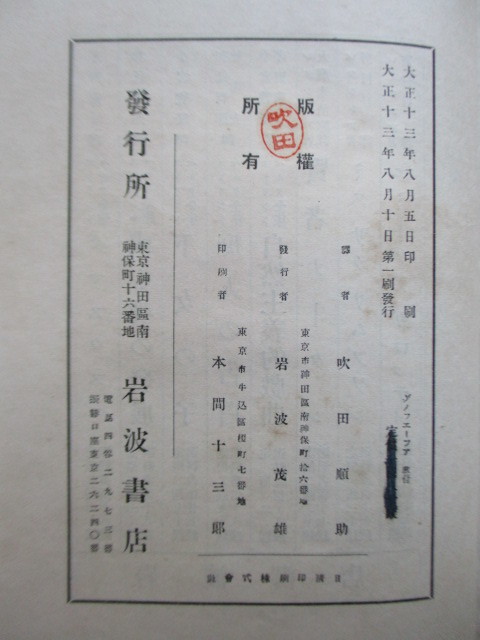 大正十三年八月五日印刷
大正十三年八月十日第一刷發行
ゲノフェーフア
版權
所有
吹田
譯者 吹田順助
東京市神田區南神保町拾六番地
發行者 岩波茂雄
東京市牛込區榎町七番地
印刷者 本間十三郎
日淸印刷株式會社
發行所
東京神田區南
神保町十六番地
岩波書店